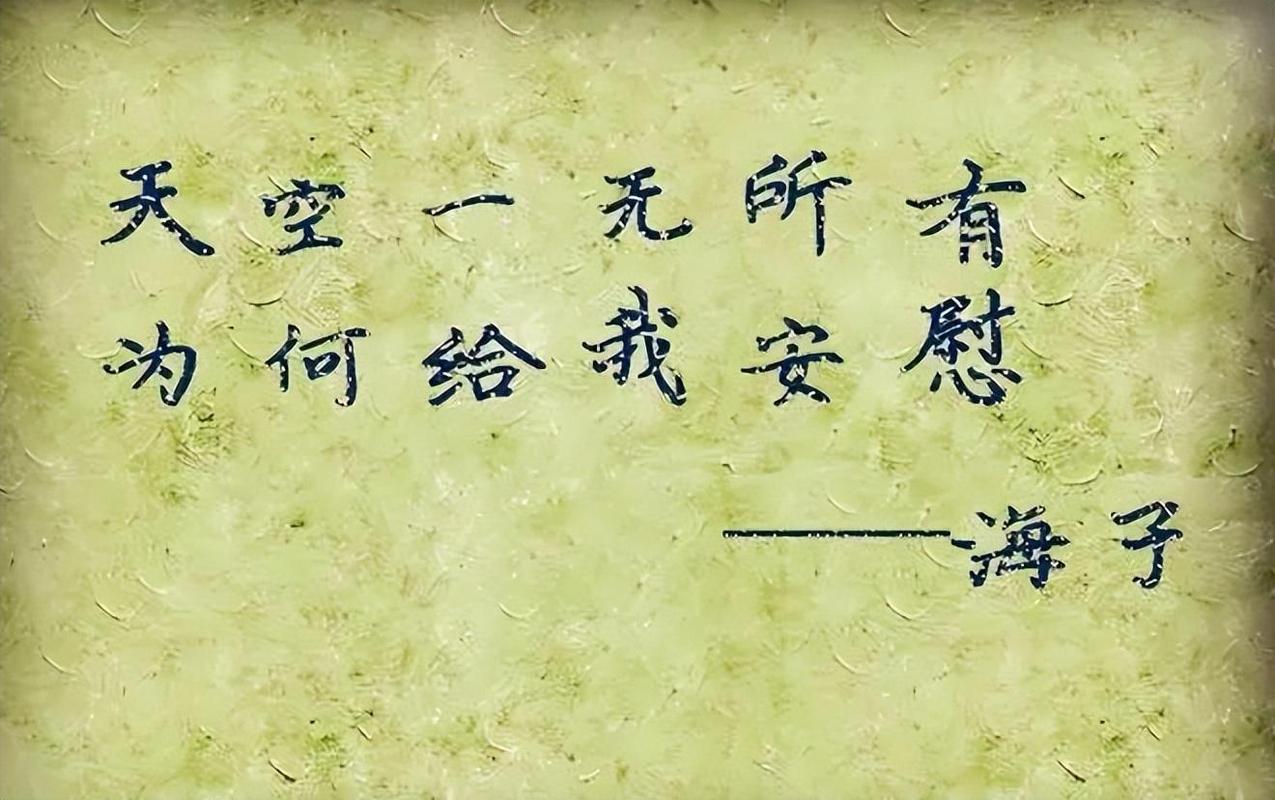 天空一无所有
为何给我安慰
——海子